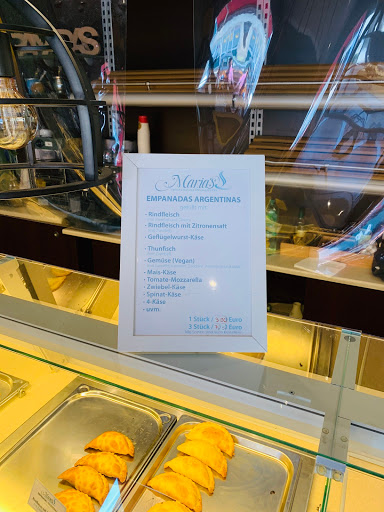 Maria's
EMPANADAS ARGENTINAS
- Rindfleisch
- Rindfleisch mit Zitronensaft
- Geflügelwurst-Käse
- Thunfisch
- Gemüse (Vegan)
- Mais-Käse
- Tomate-Mozzarella
- Zwiebel-Käse
- Spinat-Käse
- 4-Käse
- uvm.
1 Stück / Euro
3 Stück / Euro